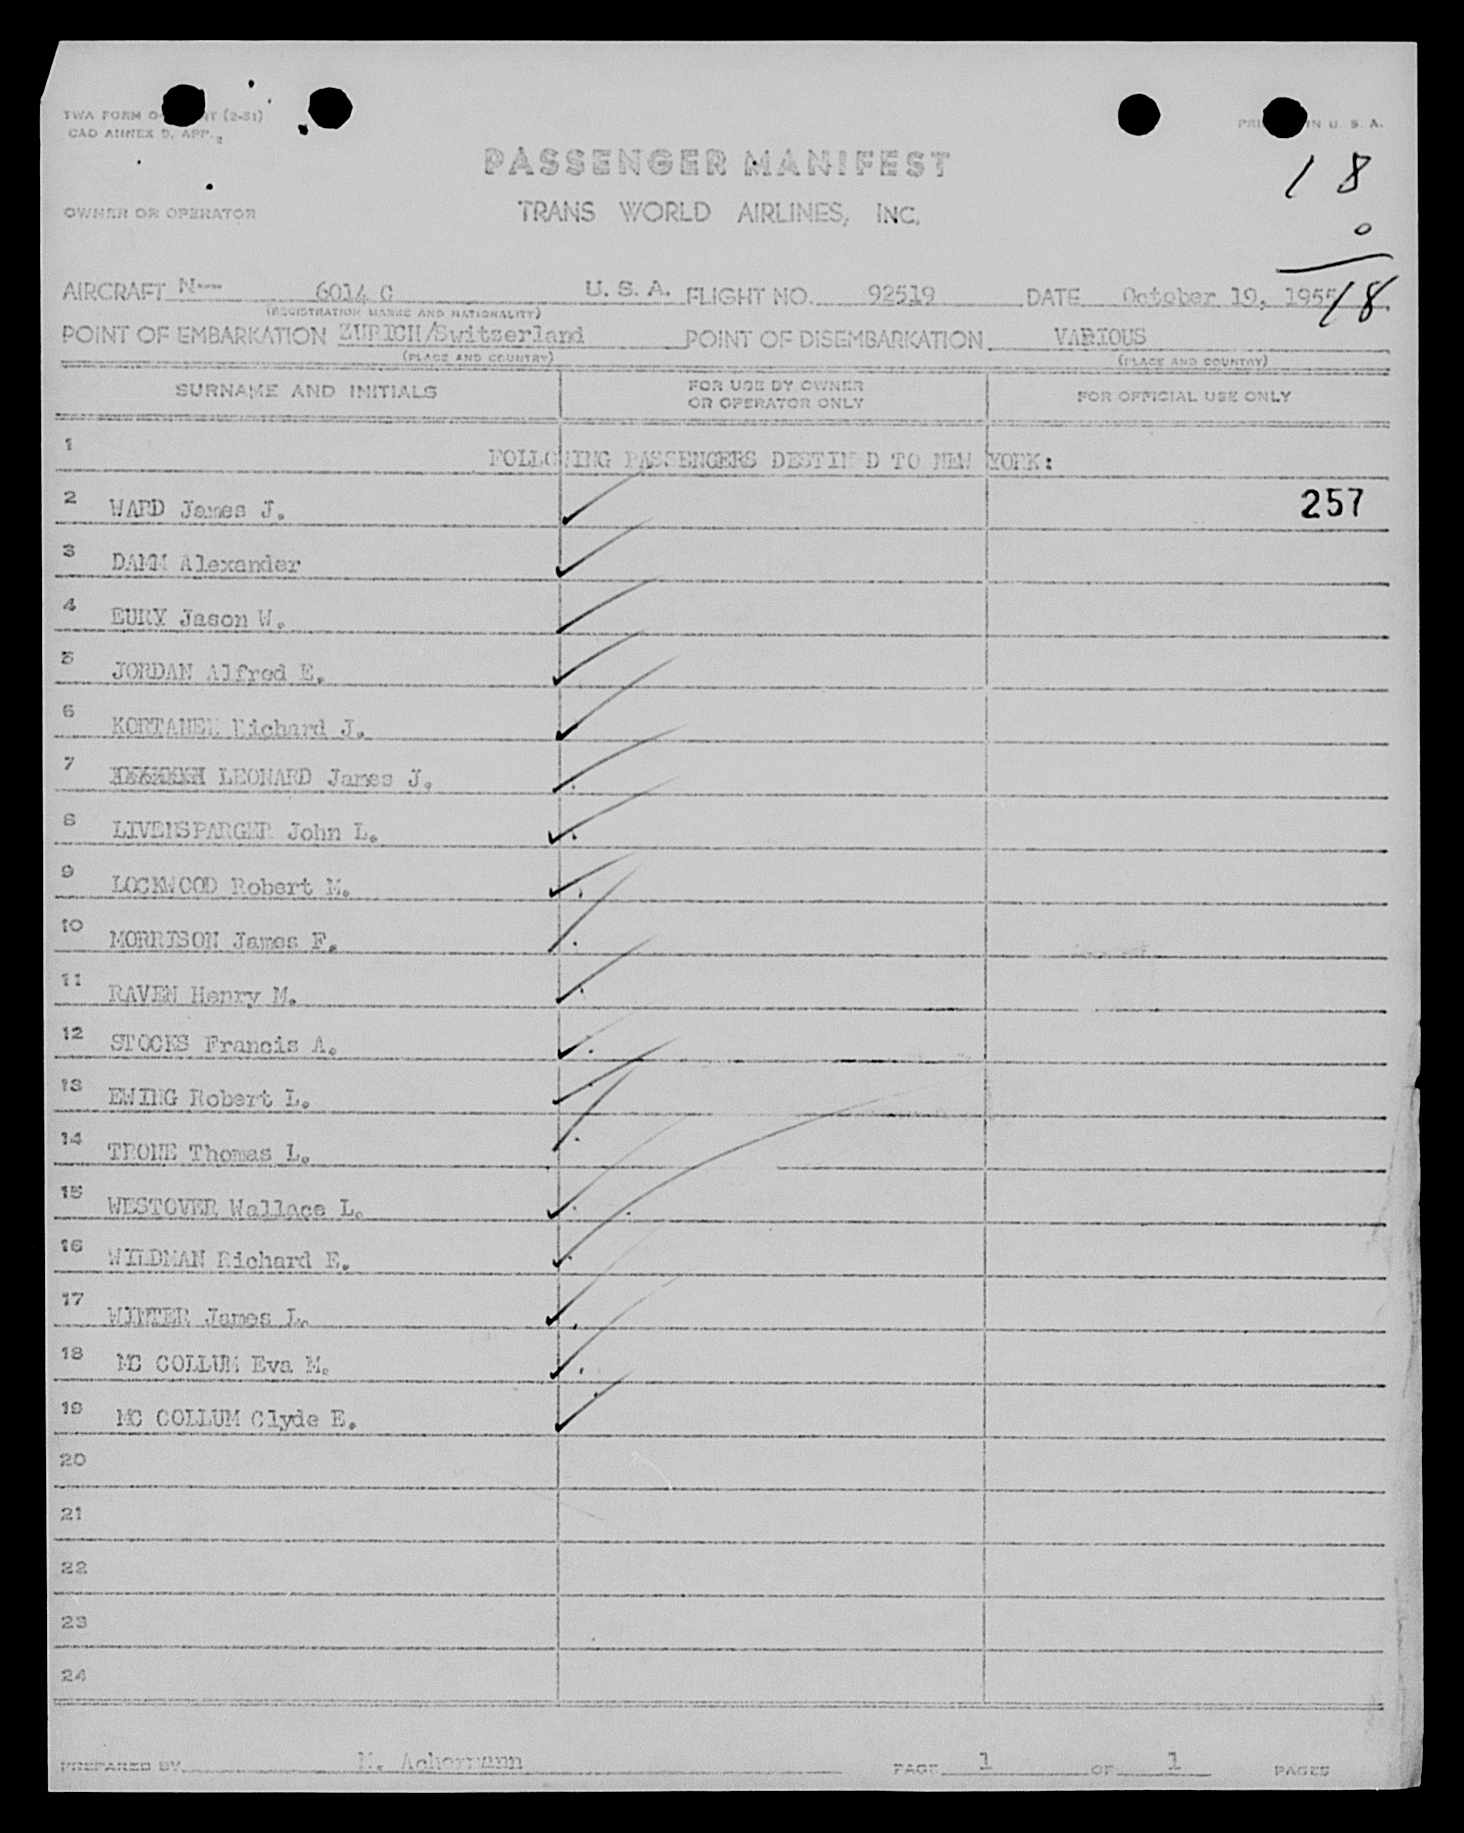 TWA FORM O- (2-51)
CAD ANNEX 9, APP. 2
PRINTED IN U. S. A.
PASSENGER MANIFEST
1 8
OWNER OR OPERATOR
TRANS WORLD AIRLINES, INC.
0
18
AIRCRAFT N--- 6014 C U. S. A. FLIGHT NO. 92519 DATE October 19, 1955
(REGISTRATION MARKS AND NATIONALITY)
POINT OF EMBARKATION ZURICH/Switzerland POINT OF DISEMBARKATION VARIOUS
(PLACE AND COUNTRY) (PLACE AND COUNTRY)
SURNAME AND INITIALS FOR USE BY OWNER OR OPERATOR ONLY FOR OFFICIAL USE ONLY
1 FOLLOWING PASSENGERS DESTIN D TO NEW YORK:
2 WARD James J. 257
3 DAMM Alexander
4 EURY Jason W.
5 JORDAN Alfred E.
6 KORTANEK Richard J.
7 LEONARD James J.
8 LIVENSPARGER John L.
9 LOCKWOOD Robert M.
10 MORRISON James F.
11 RAVEN Henry M.
12 STOCKS Francis A.
13 EWING Robert L.
14 TRONE Thomas L.
15 WESTOVER Wallace L.
16 WILDMAN Richard E.
17 WINTER James L.
18 MC COLLUM Eva M.
19 MC COLLUM Clyde E.
20
21
22
23
24
PREPARED BY M. Ackermann PAGE 1 OF 1 PAGES